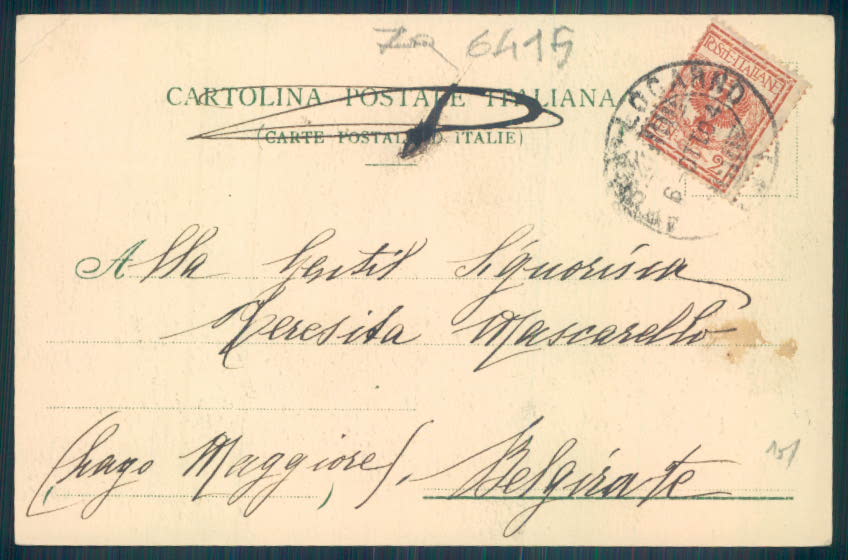 Za 6415
CARTOLINA POSTALE ITALIANA
(CARTE POSTALE D'ITALIE)
POSTE·ITALIANE
LOCARNO
Alla Gentil Signorina
Teresita Mascarello
(Lago Maggiore). Belgirate